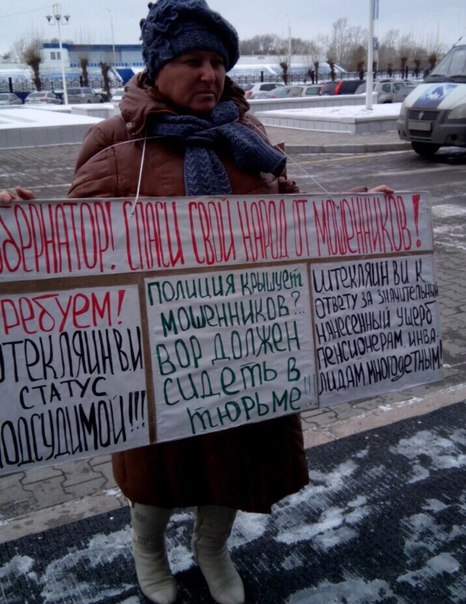 УБЕРНАТОР! СПАСИ СВОЙ НАРОД ОТ МОШЕННИКОВ!
РЕБУЕМ!
ТЕКЛЯИН В И
СТАТУС
ПОДСУДИМОЙ!!!
ПОЛИЦИЯ КРЫШУЕТ
МОШЕННИКОВ??
ВОР ДОЛЖЕН
СИДЕТЬ В
ТЮРЬМЕ!!
ШТЕКЛЯИН В И К
ОТВЕТУ ЗА ЗНАЧИТЕЛЬНЫЙ
НАНЕСЕННЫЙ УЩЕРБ
ПЕНСИОНЕРАМ ИНВА-
ЛИДАМ, МНОГОДЕТНЫМ!